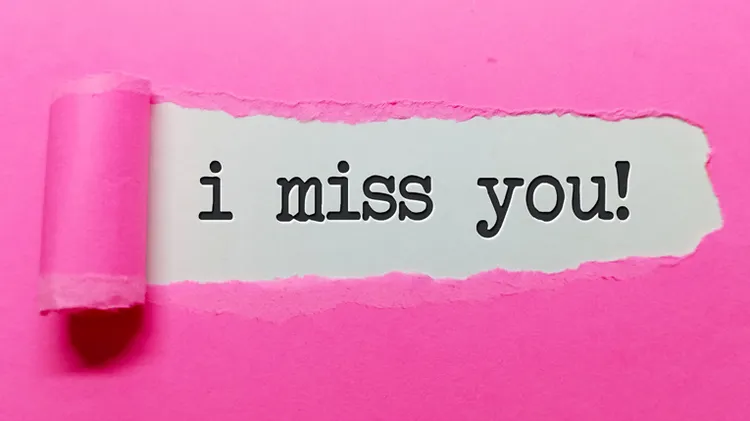 i miss you!